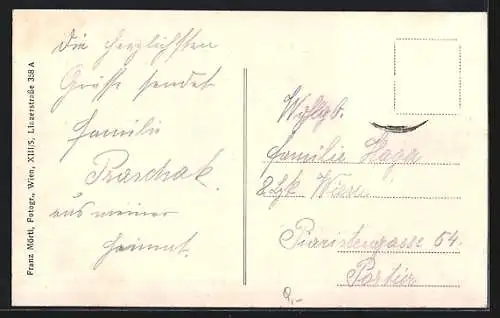 Die herzlichsten
Grüsse sendet
Familie
Praschak
aus meiner
Heimat.
Franz Mörtl, Fotogr., Wien, XIII/5, Linzerstraße 358 A
Wohlgb.
Familie Haga
Wien
Piaristengasse 54.
Portier